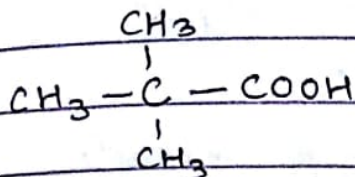 CH3
|
CH3 - C - COOH
|
CH3